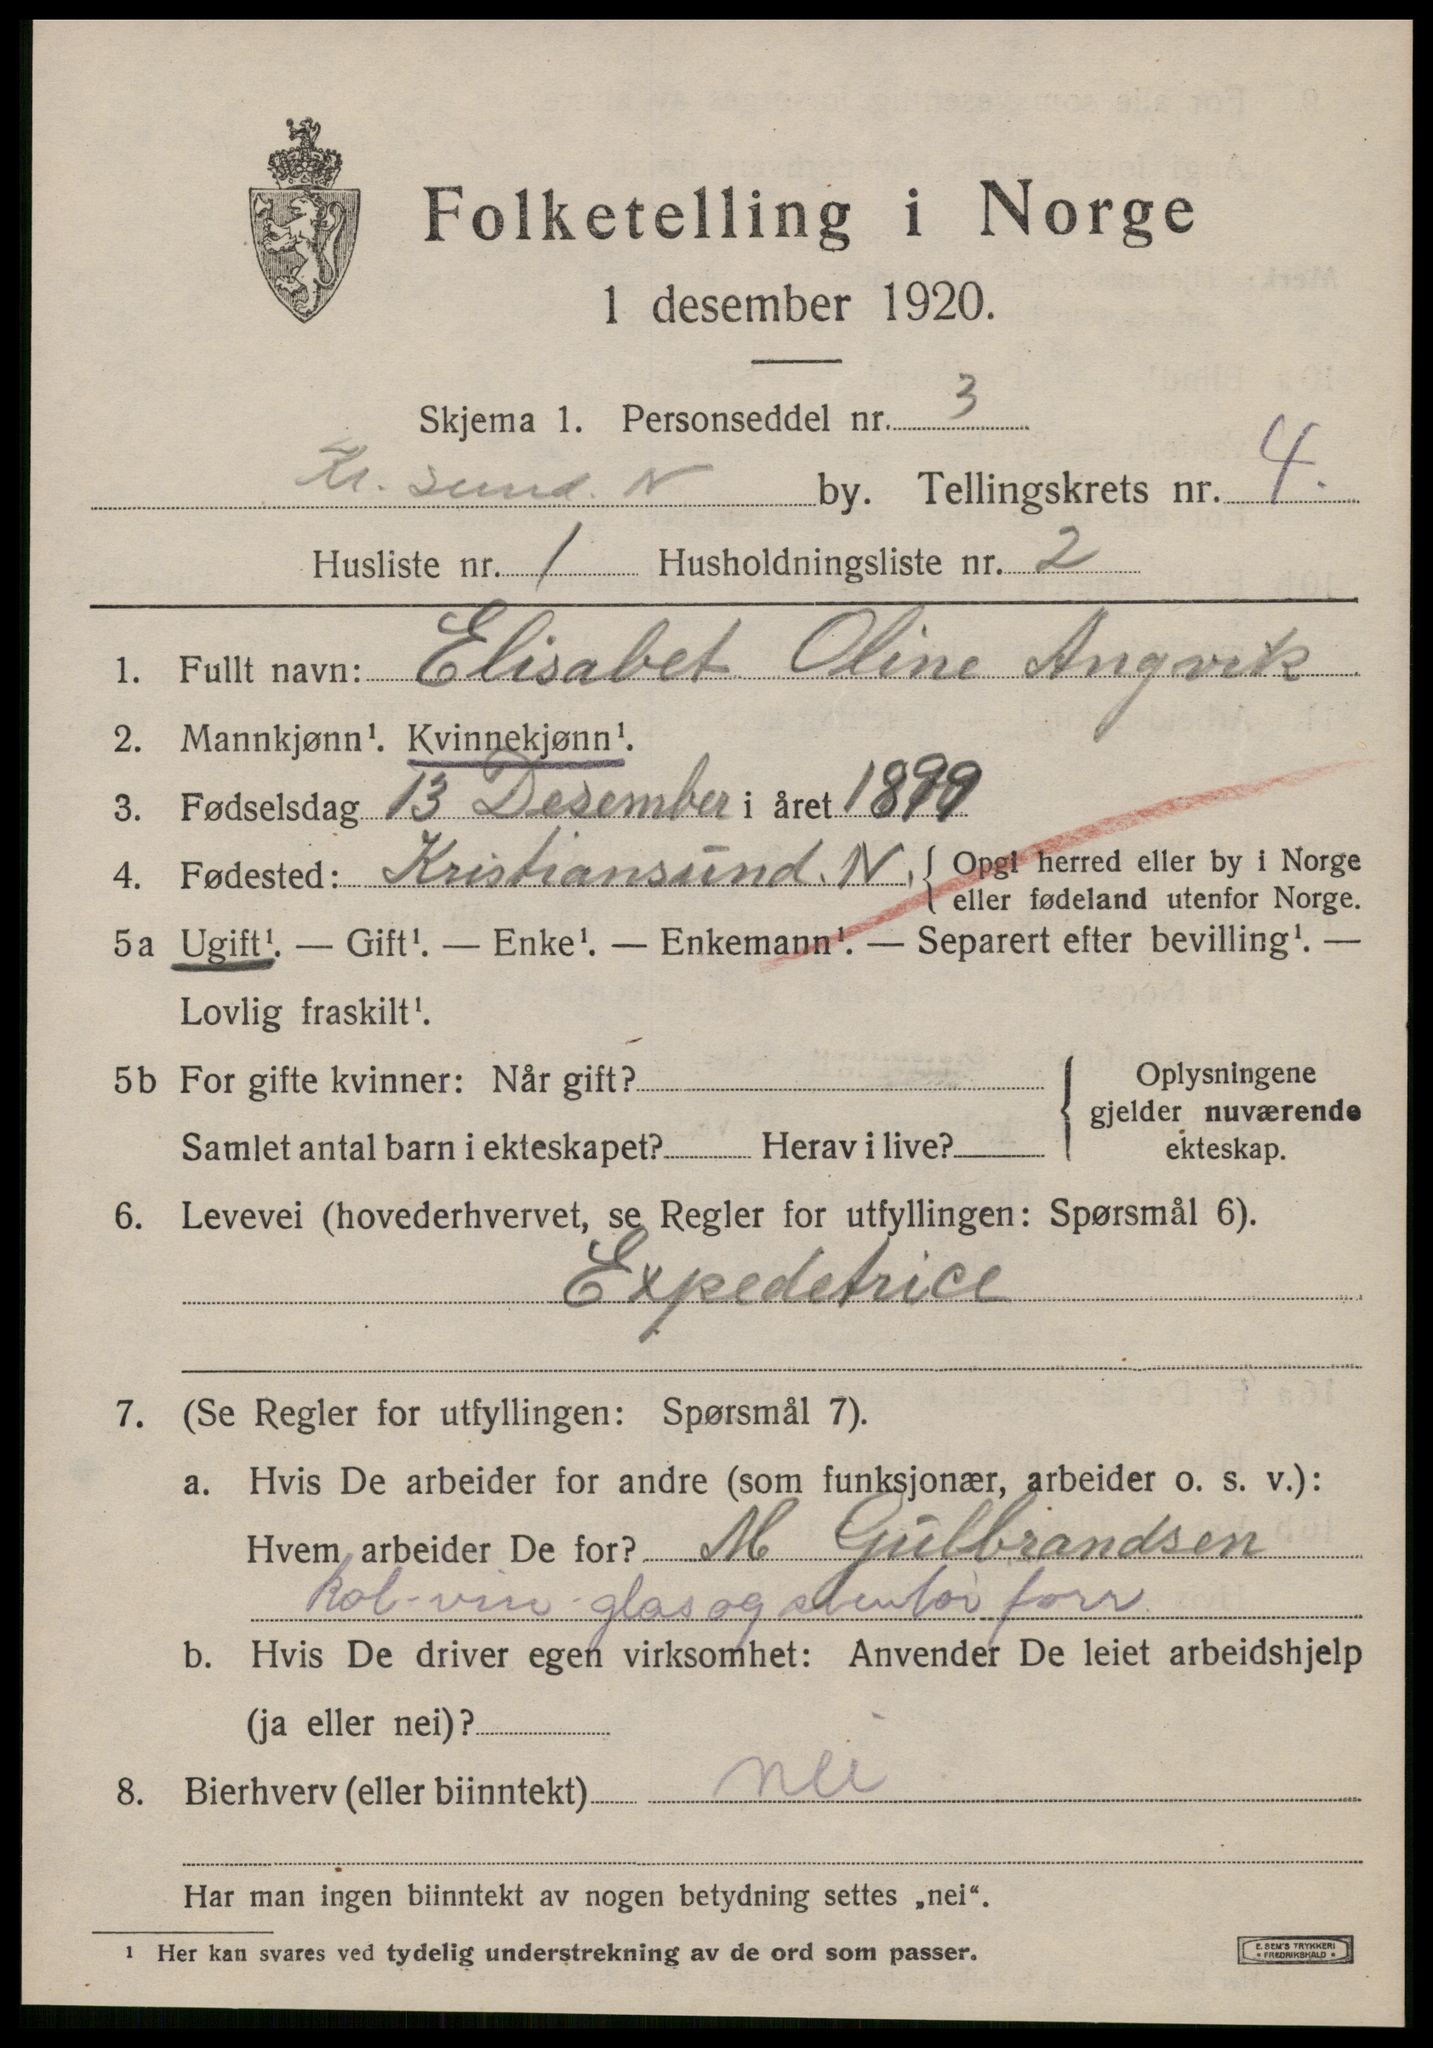 Folketelling i Norge
1 desember 1920.
Skjema 1. Personseddel nr. 3
Kr. sund. N by. Tellingskrets nr. 4.
Husliste nr. 1 Husholdningsliste nr. 2
1. Fullt navn: Elisabet Oline Angvik
2. Mannkjønn¹. Kvinnekjønn¹.
3. Fødselsdag 13 Desember i året 1899
4. Fødested: Kristiansund. N. { Opgi herred eller by i Norge
eller fødeland utenfor Norge.
5a Ugift¹. — Gift¹. — Enke¹. — Enkemann¹. — Separert efter bevilling¹. —
Lovlig fraskilt¹.
5b For gifte kvinner: Når gift? { Oplysningene
gjelder nuværende
Samlet antal barn i ekteskapet? Herav i live? ekteskap.
6. Levevei (hovederhvervet, se Regler for utfyllingen: Spørsmål 6).
Expedetrice
7. (Se Regler for utfyllingen: Spørsmål 7).
a. Hvis De arbeider for andre (som funksjonær, arbeider o. s. v.):
Hvem arbeider De for? M Gulbrandsen
Kol-vin-glas og stentøi forr
b. Hvis De driver egen virksomhet: Anvender De leiet arbeidshjelp
(ja eller nei)?
8. Bierhverv (eller biinntekt) nei
Har man ingen biinntekt av nogen betydning settes „nei“.
¹ Her kan svares ved tydelig understrekning av de ord som passer.
E. SEM'S TRYKKERI
* FREDRIKSHALD *